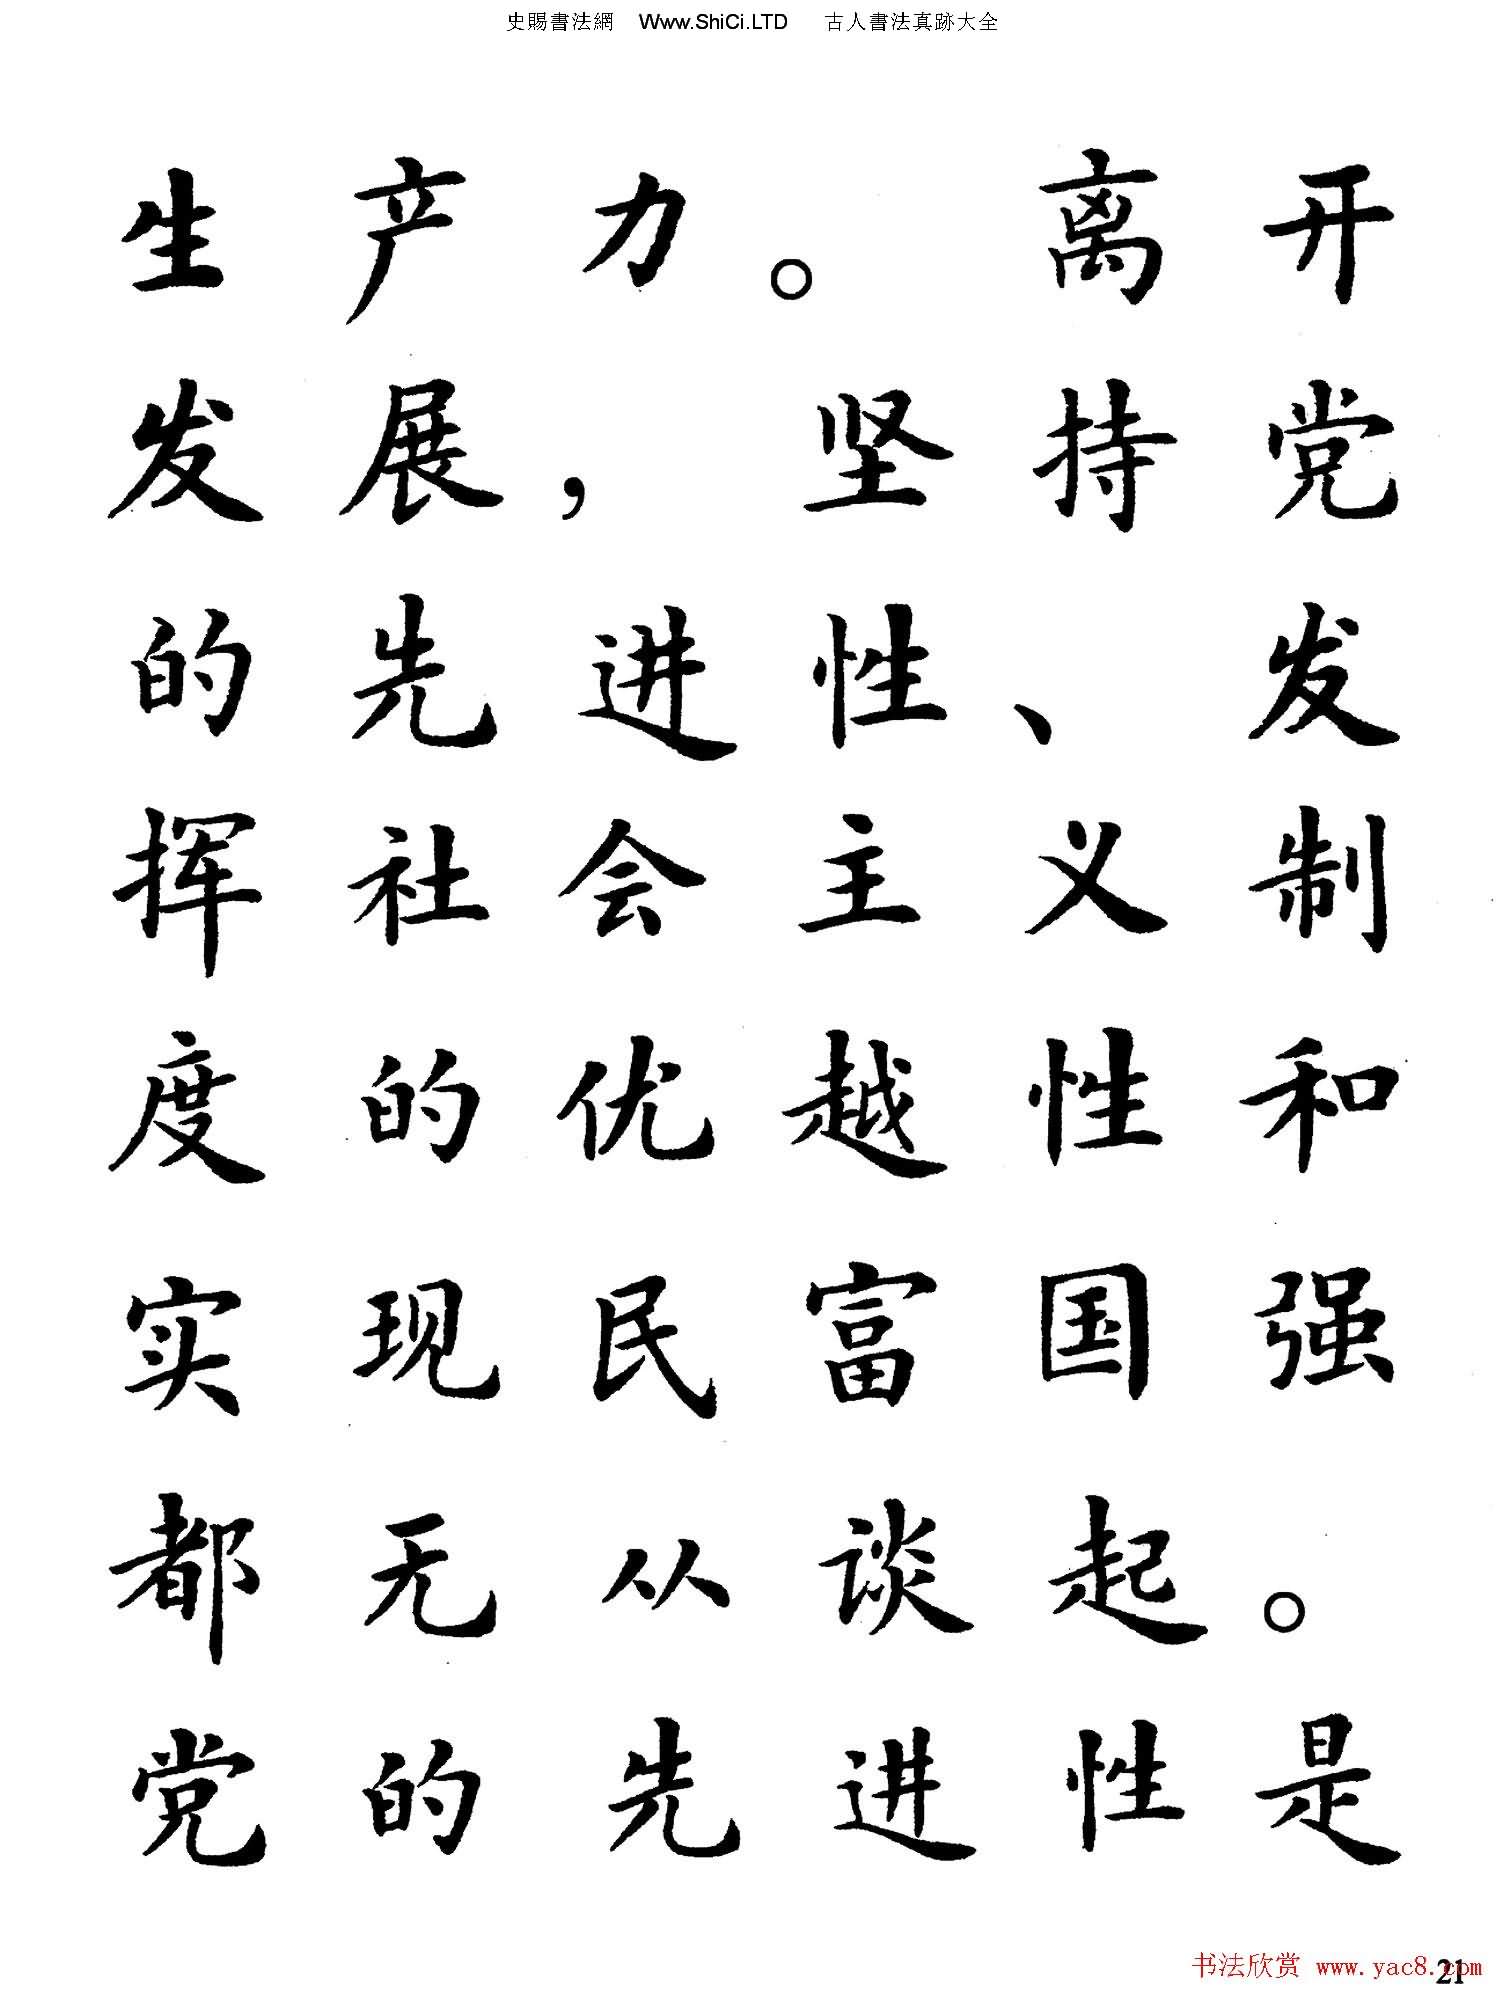 史賜書法網 Www.ShiCi.LTD 古人書法真跡大全
生产力。离开
发展，坚持党
的先进性、发
挥社会主义制
度的优越性和
实现民富国强
都无从谈起。
党的先进性是
书法欣赏 www.yac8.com
21